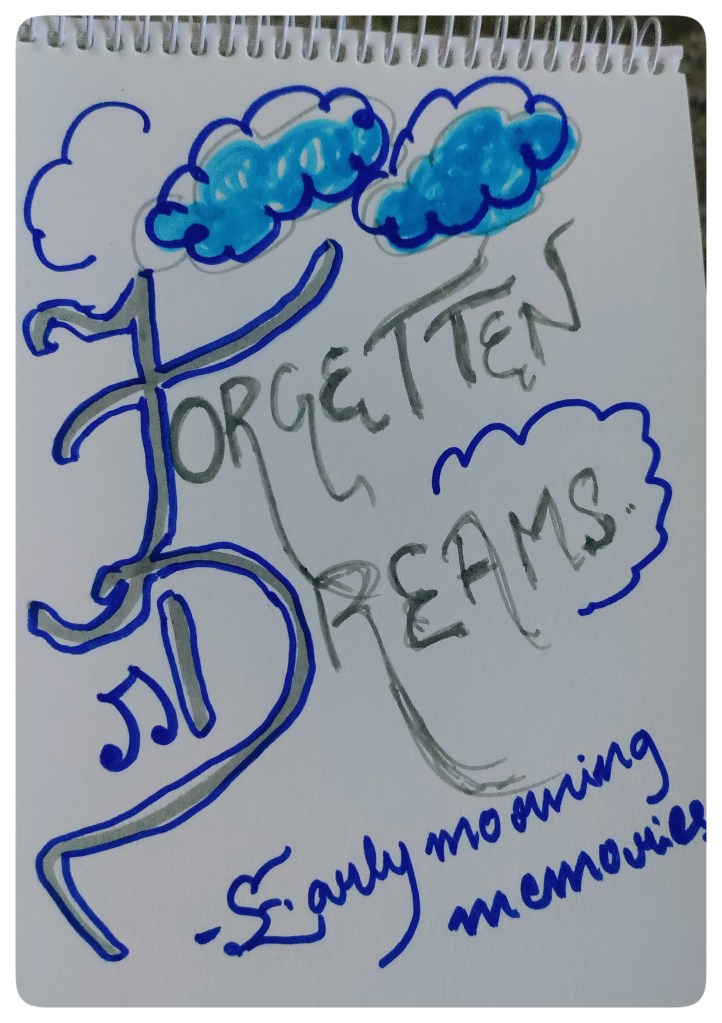 FORGETTEN
DREAMS..
- Early mourning
memories